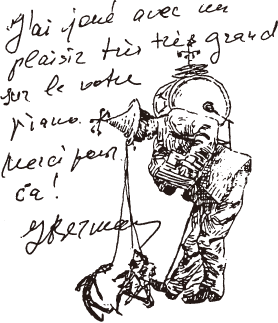 J'ai joué avec un
plaisir très très grand
sur le votre
piano.
Merci pour
ça!